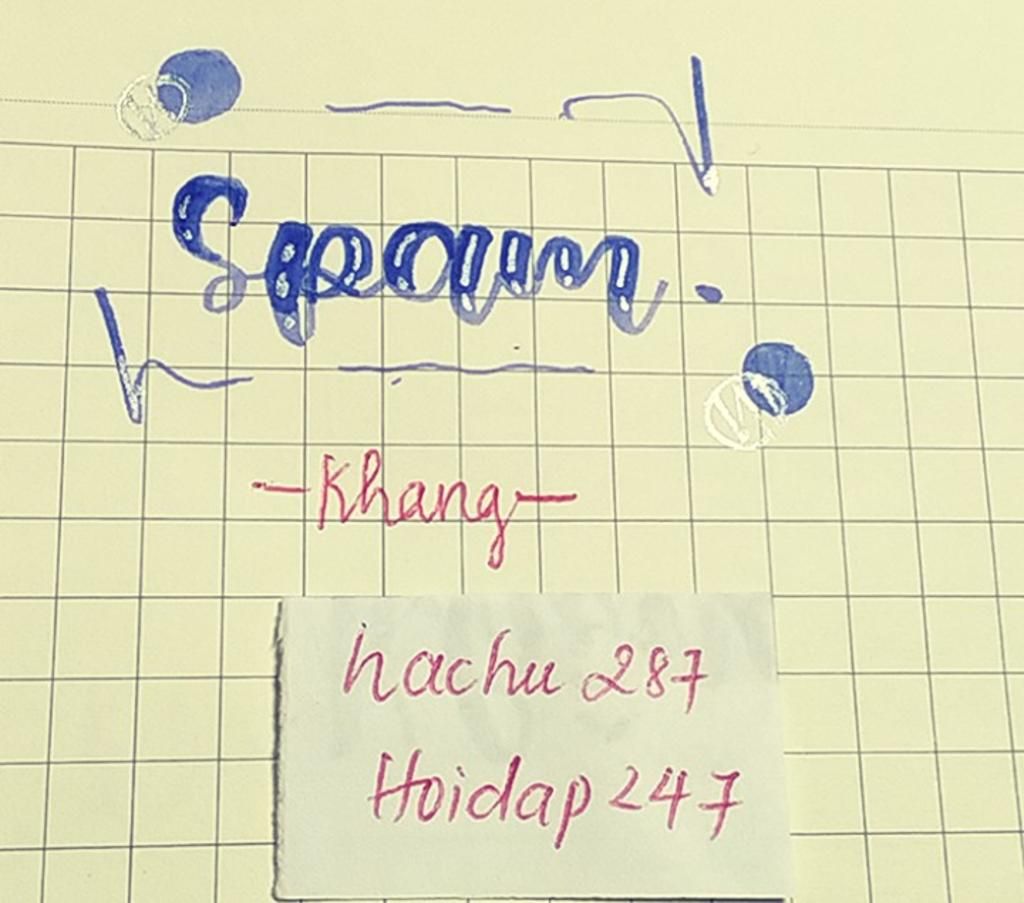 Spam.
-Khang-
hachu 287
Hoidap 247